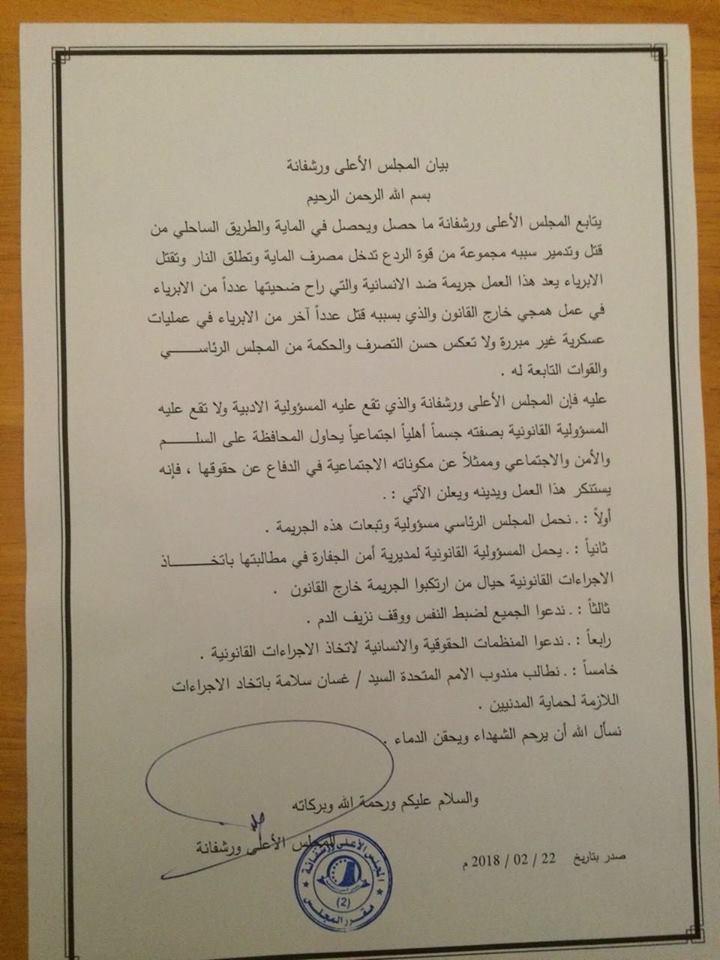 بيان المجلس الأعلى ورشفانة
بسم الله الرحمن الرحيم
يتابع المجلس الأعلى ورشفانة ما حصل ويحصل في الماية والطريق الساحلي من
قتل وتدمير سببه مجموعة من قوة الردع تدخل مصرف الماية وتطلق النار وتقتل
الابرياء يعد هذا العمل جريمة ضد الانسانية والتي راح ضحيتها عدداً من الابرياء
في عمل همجي خارج القانون والذي بسببه قتل عدداً آخر من الابرياء في عمليات
عسكرية غير مبررة ولا تعكس حسن التصرف والحكمة من المجلس الرئاسي
والقوات التابعة له .
عليه فإن المجلس الأعلى ورشفانة والذي تقع عليه المسؤولية الادبية ولا تقع عليه
المسؤولية القانونية بصفته جسماً أهلياً اجتماعياً يحاول المحافظة على السلم
والأمن والاجتماعي وممثلاً عن مكوناته الاجتماعية في الدفاع عن حقوقها ، فإنه
يستنكر هذا العمل ويدينه ويعلن الآتي : .
أولاً : . نحمل المجلس الرئاسي مسؤولية وتبعات هذه الجريمة .
ثانياً : . يحمل المسؤولية القانونية لمديرية أمن الجفارة في مطالبتها باتخاذ
الاجراءات القانونية حيال من ارتكبوا الجريمة خارج القانون .
ثالثاً : . ندعوا الجميع لضبط النفس ووقف نزيف الدم .
رابعاً : . ندعوا المنظمات الحقوقية والانسانية لاتخاذ الاجراءات القانونية .
خامساً : . نطالب مندوب الامم المتحدة السيد / غسان سلامة باتخاد الاجراءات
اللازمة لحماية المدنيين .
نسأل الله أن يرحم الشهداء ويحقن الدماء .
والسلام عليكم ورحمة الله وبركاته
المجلس الأعلى ورشفانة
صدر بتاريخ 22 / 02 / 2018 م
المجلس الأعلى ورشفانة
(2)
مقرر المجلس